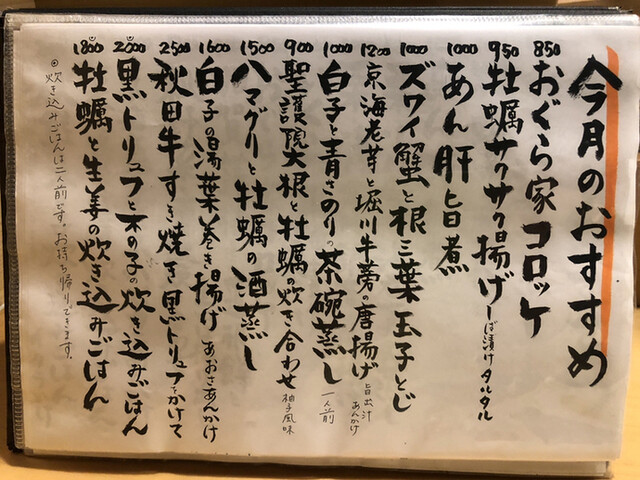 今月のおすすめ
850 おぐら家コロッケ
950 牡蠣サクサク揚げ しば漬けタルタル
1000 あん肝旨煮
1000 ズワイ蟹と根三葉玉子とじ
1200 京海老芋と堀川牛蒡の唐揚げ 旨出汁あんかけ
1000 白子と青さのりの茶碗蒸し 一人前
900 聖護院大根と牡蠣の炊き合わせ 柚子風味
1500 ハマグリと牡蠣の酒蒸し
1600 白子の湯葉巻き揚げ あおさあんかけ
2500 秋田牛すき焼き黒トリュフをかけて
2000 黒トリュフと木の子の炊き込みごはん
1800 牡蠣と生姜の炊き込みごはん
◎炊き込みごはんは二人前です。お持ち帰りできます。